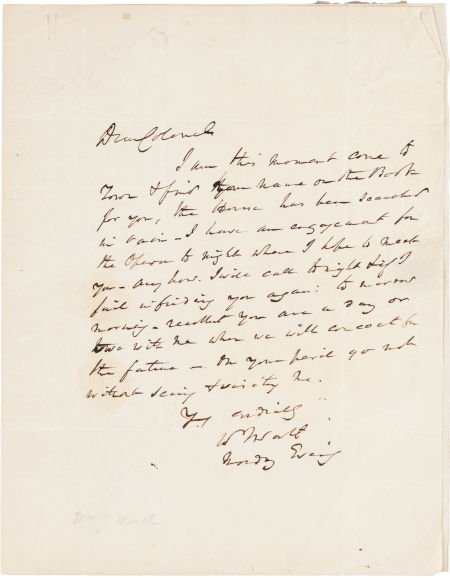 Dear Colonel
I am this moment come to
Town & find your name on the Book
for you, the House has been searched
in vain - I have an engagement for
the Opera to night where I hope to meet
you - any how. I will call to night & if I
fail in finding you again to morrow
morning - recollect you are a day or
two with me when we will concoct for
the future - On your peril go not
without seeing & me.
Yrs cordially
W
Monday Eveng